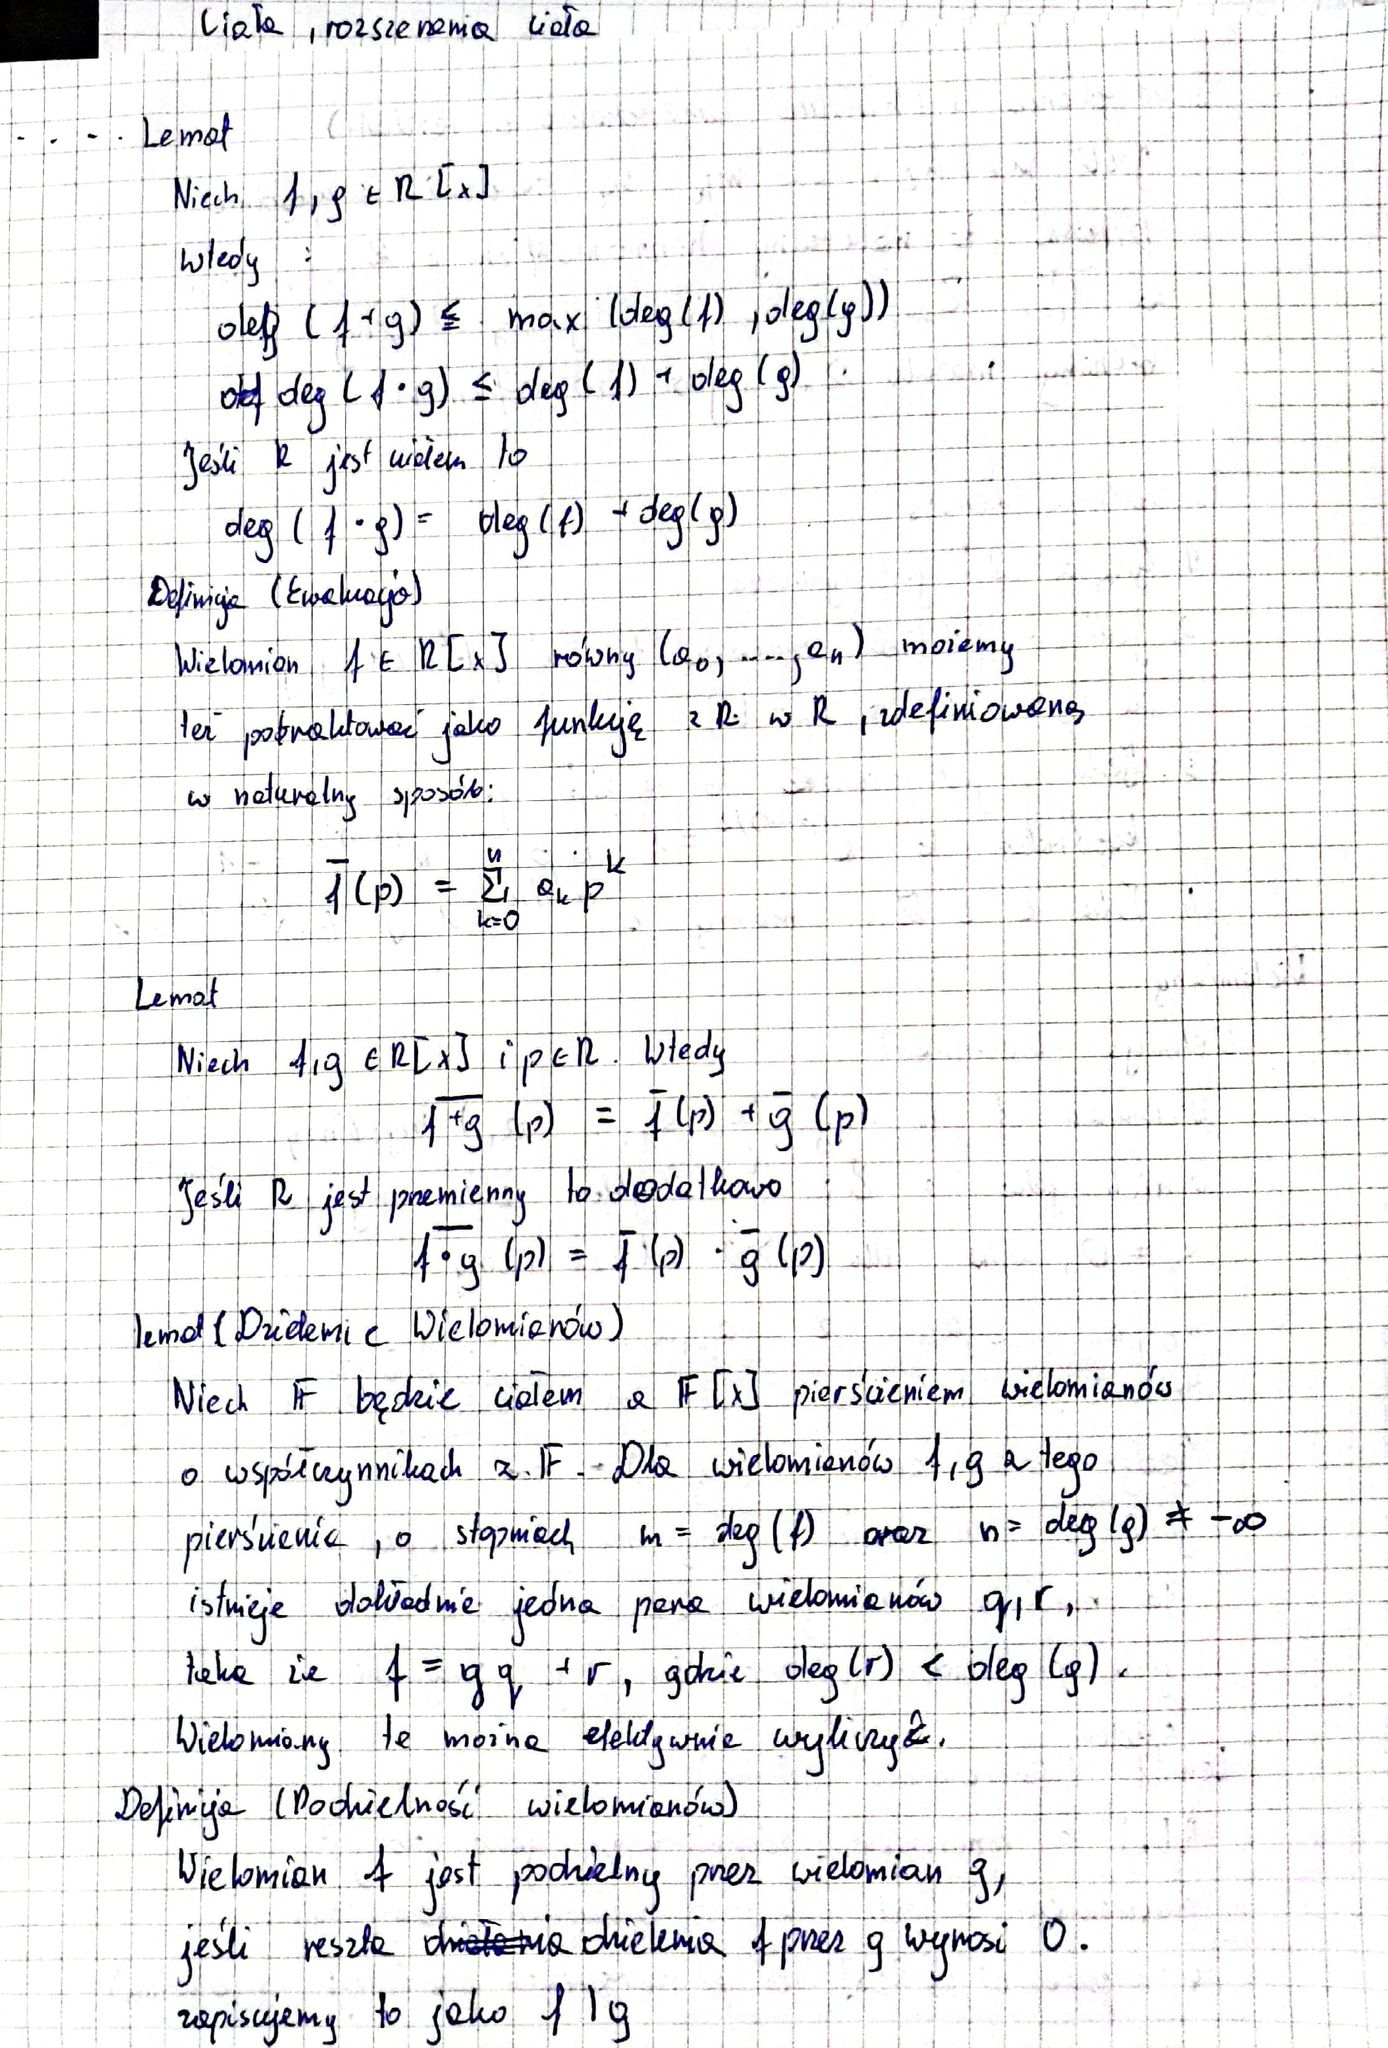 Ciała, rozszerzenia ciała
Lemat
Niech f, g ∈ R[x]
Wtedy :
deg (f + g) ≤ max (deg(f), deg(g))
deg (f · g) ≤ deg(f) + deg(g)
Jeśli R jest ciałem to
deg (f · g) = deg(f) + deg(g)
Definicja (Ewaluacja)
Wielomian f ∈ R[x] równy (a₀, ....., aₙ) możemy
też potraktować jako funkcję z R w R, zdefiniowaną
w naturalny sposób:
f̅(p) = ∑ₖ₌₀ⁿ aₖ pᵏ
Lemat
Niech f, g ∈ R[x] i p ∈ R. Wtedy
\overline{f+g} (p) = f̅(p) + g̅(p)
Jeśli R jest przemienny to dodatkowo
\overline{f·g} (p) = f̅(p) · g̅(p)
lemat (Dzielenie Wielomianów)
Niech 𝔽 będzie ciałem a 𝔽[x] pierścieniem wielomianów
o współczynnikach z 𝔽. Dla wielomianów f, g z tego
pierścienia, o stopniach m = deg(f) oraz n = deg(g) ≠ -∞
istnieje dokładnie jedna para wielomianów q, r,
taka że f = gq + r, gdzie deg(r) < deg(g).
Wielomiany te można efektywnie wyliczyć.
Definicja (Podzielność wielomianów)
Wielomian f jest podzielny przez wielomian g,
jeśli reszta dzielenia f przez g wynosi 0.
zapisujemy to jako f | g